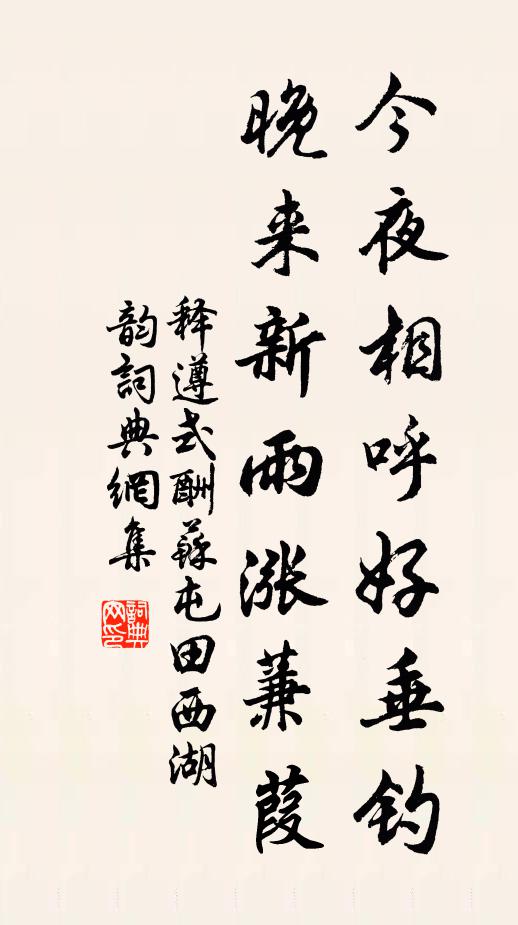 今夜相呼好垂钓
晚来新雨涨蒹葭
释遵式酬苏屯田西湖
韵詞典網集
詞典网印